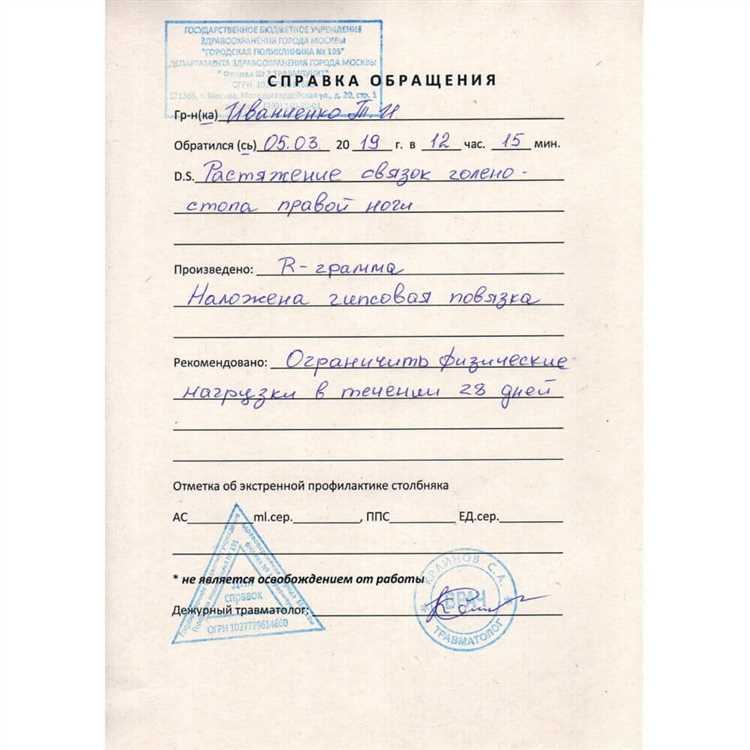 ГОСУДАРСТВЕННОЕ БЮДЖЕТНОЕ УЧРЕЖДЕНИЕ
ЗДРАВООХРАНЕНИЯ ГОРОДА МОСКВЫ
"ГОРОДСКАЯ ПОЛИКЛИНИКА № 195"
ДЕПАРТАМЕНТА ЗДРАВООХРАНЕНИЯ ГОРОДА МОСКВЫ
ОГРН
СПРАВКА ОБРАЩЕНИЯ
Гр-н(ка) Иванченко Т. И
Обратился (сь) 05.03 2019 г. в 12 час. 15 мин.
D.S. Растяжение связок голено-
стопа правой ноги
Произведено: R-грамма
Наложена гипсовая повязка
Рекомендовано: Ограничить физические
нагрузки в течении 28 дней
Отметка об экстренной профилактике столбняка
АС ml.сер. , ППС ЕД.сер.
* не является освобождением от работы
Дежурный травматолог:
для
справок
КРАЙНОВ С.А.
ВРАЧ
ТРАВМАТОЛОГ